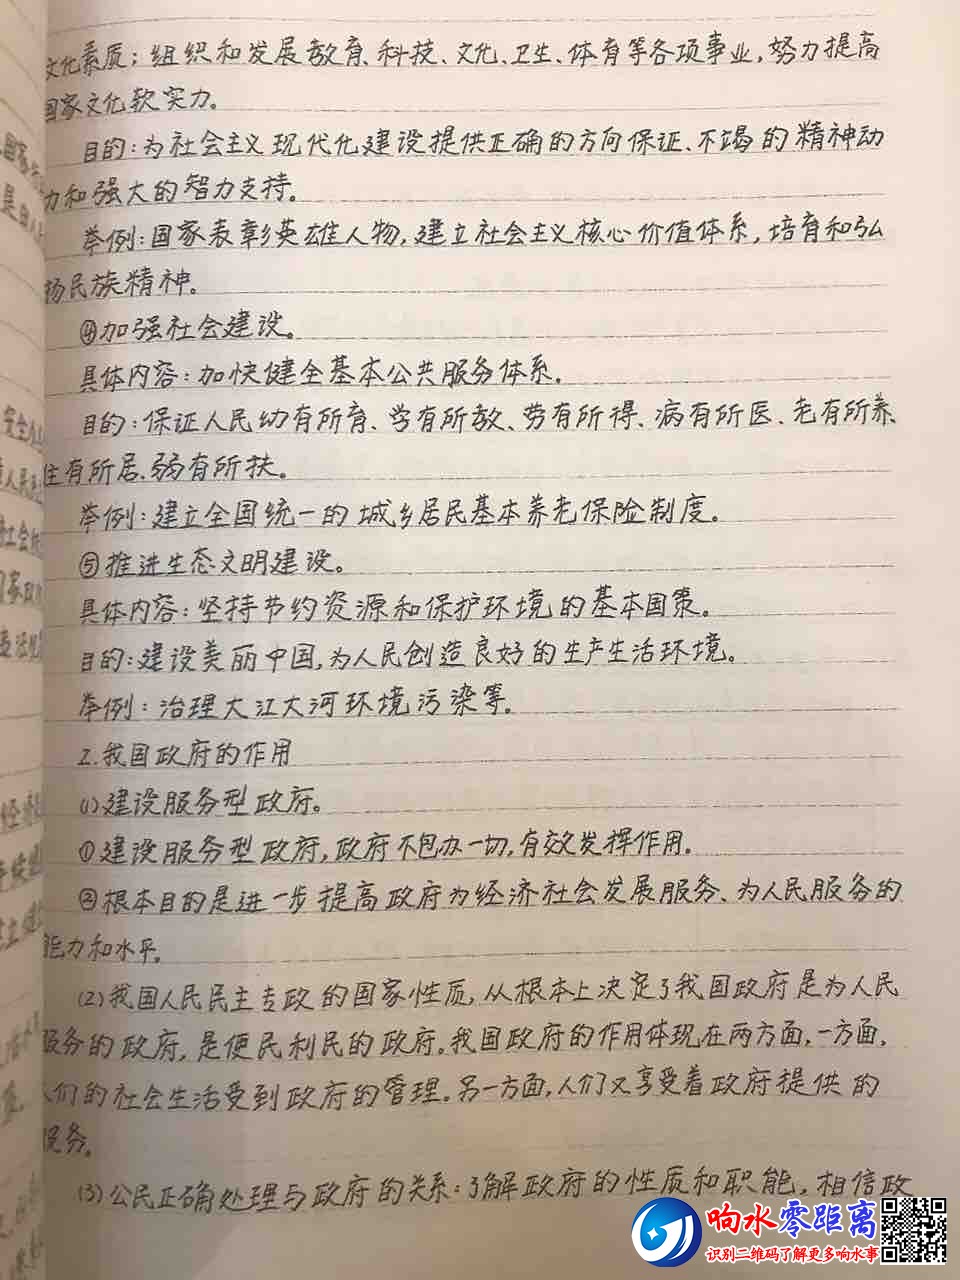 文化素质；组织和发展教育、科技、文化、卫生、体育等各项事业，努力提高
国家文化软实力。
目的：为社会主义现代化建设提供正确的方向保证、不竭的精神动
力和强大的智力支持。
举例：国家表彰英雄人物，建立社会主义核心价值体系，培育和弘
扬民族精神。
④加强社会建设。
具体内容：加快健全基本公共服务体系。
目的：保证人民幼有所育、学有所教、劳有所得、病有所医、老有所养、
住有所居、弱有所扶。
举例：建立全国统一的城乡居民基本养老保险制度。
⑤推进生态文明建设。
具体内容：坚持节约资源和保护环境的基本国策。
目的：建设美丽中国，为人民创造良好的生产生活环境。
举例：治理大江大河环境污染等。
2.我国政府的作用
(1)建设服务型政府。
①建设服务型政府，政府不包办一切，有效发挥作用。
②根本目的是进一步提高政府为经济社会发展服务、为人民服务的
能力和水平。
(2)我国人民民主专政的国家性质，从根本上决定了我国政府是为人民
服务的政府，是便民利民的政府。我国政府的作用体现在两方面，一方面，
人们的社会生活受到政府的管理。另一方面，人们又享受着政府提供的
服务。
(3)公民正确处理与政府的关系：了解政府的性质和职能，相信政
响水零距离
识别二维码了解更多响水事